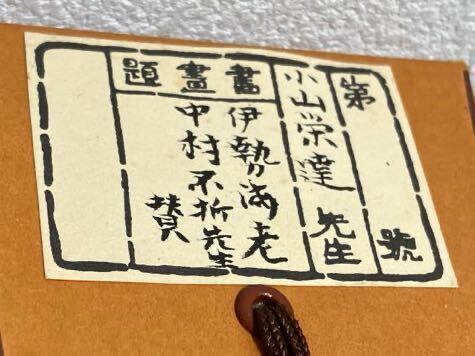 第　號
小山栄達先生
書畫題
伊勢海老
中村不折先生
賛